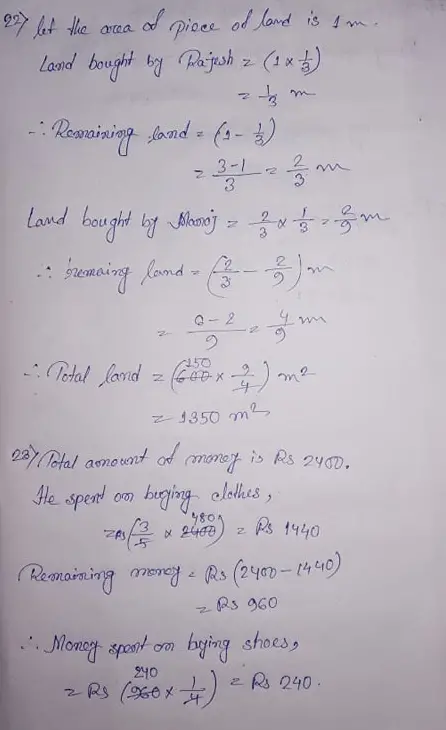 22) let the area of piece of land is 1 m.
Land bought by Rajesh = (1 × 1/3)
= 1/3 m
∴ Remaining land = (1 - 1/3)
= 3-1/3 = 2/3 m
Land bought by Manoj = 2/3 × 1/3 = 2/9 m
∴ remaing land = (2/3 - 2/9) m
= 6-2/9 = 4/9 m
∴ Total land = (150 600 × 9/4) m²
= 1350 m²
23) Total amount of money is Rs 2400.
He spent on buying clothes,
= Rs (3/5 × 480 2400) = Rs 1440
Remaining money = Rs (2400 - 1440)
= Rs 960
∴ Money spent on buying shoes,
= Rs (240 960 × 1/4) = Rs 240.